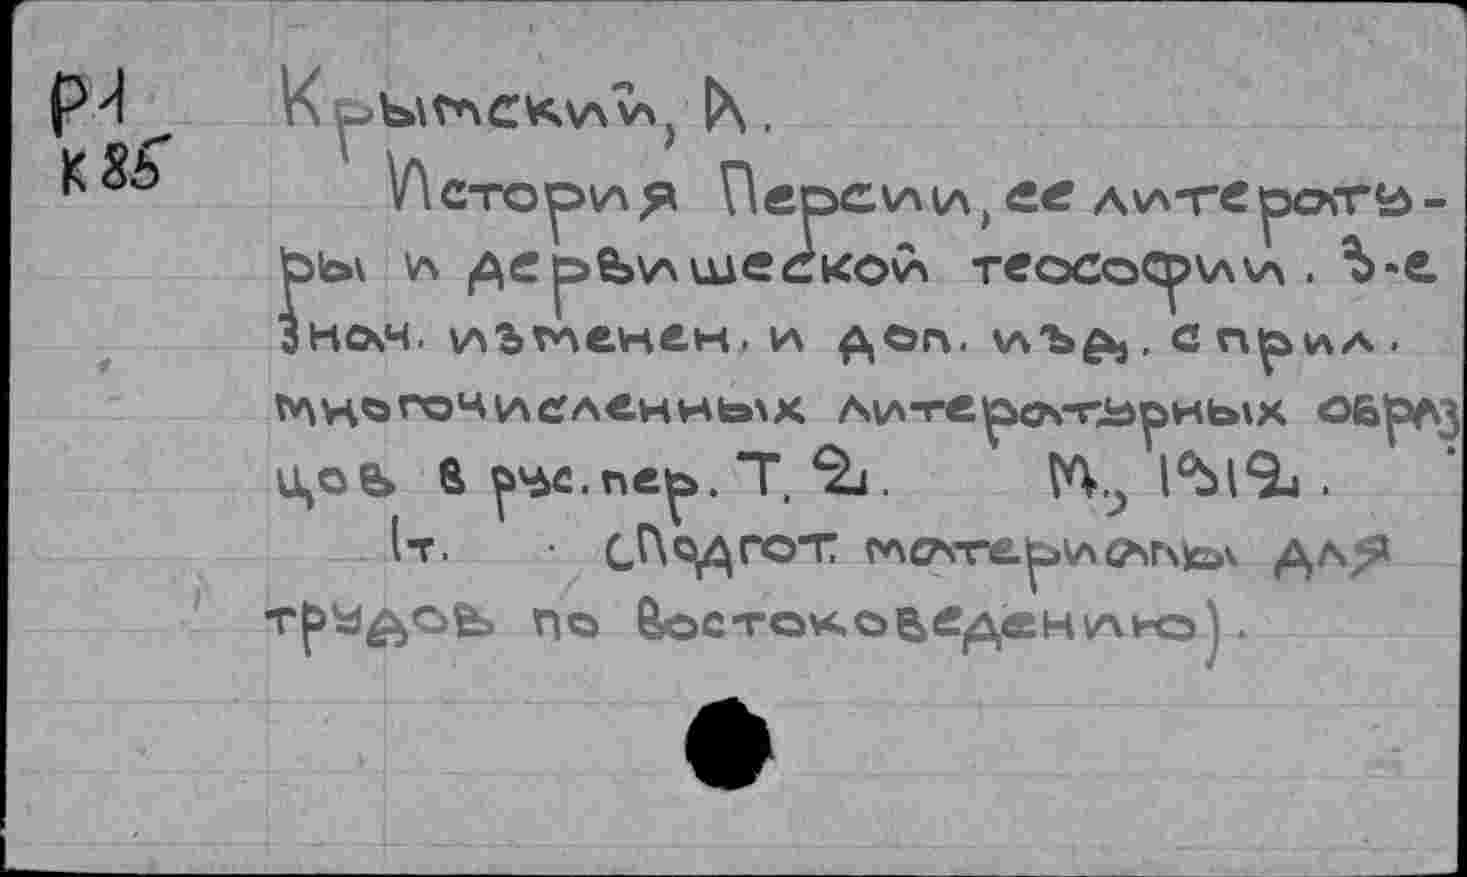 Р1 Крымский, А.
К85 История Персии, ее литерату-
ры и дервишеской теософии. 3-е
знач. изменен. и доп. изд. с прил.
многочисленных литературных образ
цов в рус. пер. Т. 2. М., 1912.
1т. (Подгот. материалы для
трудов по востоковедению).